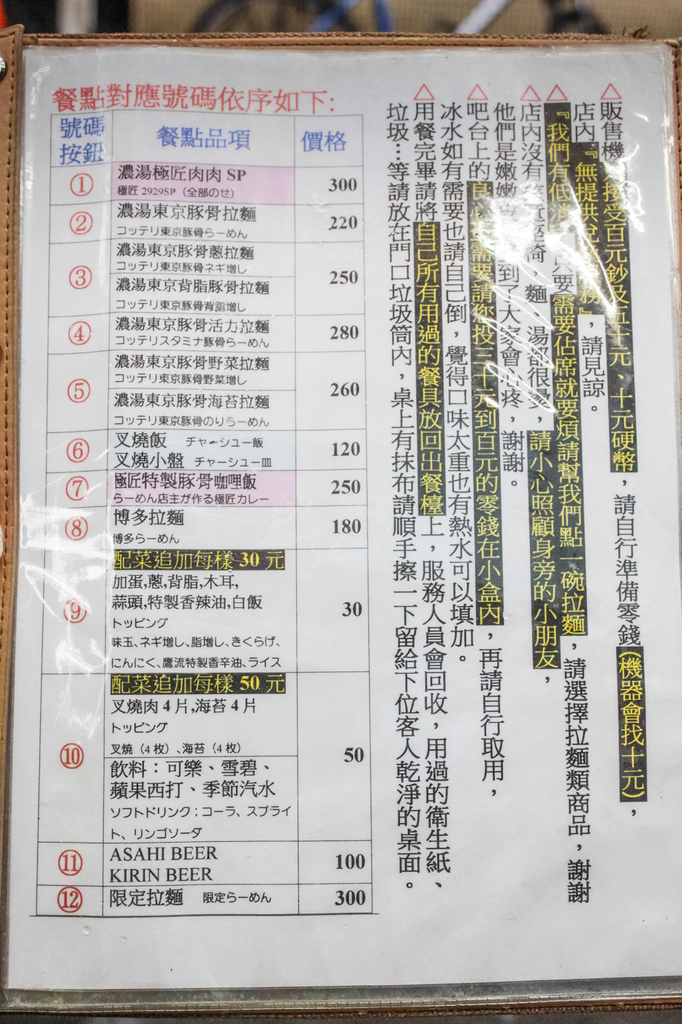 餐點對應號碼依序如下:
號碼按鈕 餐點品項 價格
① 濃湯極匠肉肉 SP 300
極匠 2929SP（全部のせ）
② 濃湯東京豚骨拉麵 220
コッテリ東京豚骨らーめん
③ 濃湯東京豚骨蔥拉麵 250
コッテリ東京豚骨ネギ増し
濃湯東京背脂豚骨拉麵
コッテリ東京豚骨背脂増し
④ 濃湯東京豚骨活力拉麵 280
コッテリスタミナ豚骨らーめん
⑤ 濃湯東京豚骨野菜拉麵 260
コッテリ東京豚骨野菜増し
濃湯東京豚骨海苔拉麵
コッテリ東京豚骨のりらーめん
⑥ 叉燒飯 チャーシュー飯 120
叉燒小盤 チャーシュー皿
⑦ 極匠特製豚骨咖哩飯 250
らーめん店主が作る極匠カレー
⑧ 博多拉麵 180
博多らーめん
⑨ 配菜追加每樣 30 元 30
加蛋,蔥,背脂,木耳,
蒜頭,特製香辣油,白飯
トッピング
味玉、ネギ増し、脂増し、きくらげ、
にんにく、鷹流特製香辛油、ライス
⑩ 配菜追加每樣 50 元 50
叉燒肉 4 片,海苔 4 片
トッピング
叉燒（4 枚）、海苔（4 枚）
飲料：可樂、雪碧、
蘋果西打、季節汽水
ソフトドリンク；コーラ、スプライ
ト、リンゴソーダ
⑪ ASAHI BEER 100
KIRIN BEER
⑫ 限定拉麵 限定らーめん 300
△販售機接受百元鈔及五十元、十元硬幣，請自行準備零錢(機器會找十元)，
店內『無提供 務』，請見諒。
△『我們有低消 只要需要佔席就要煩請幫我們點一碗拉麵，請選擇拉麵類商品，謝謝
△店內沒有 椅，麵，湯都很燙，請小心照顧身旁的小朋友，
他們是嫩嫩 到了大家會心疼，謝謝。
△吧台上的 需要請您投三十元到百元的零錢在小盒內，再請自行取用，
冰水如有需要也請自己倒，覺得口味太重也有熱水可以填加。
△用餐完畢請將自己所有用過的餐具放回出餐檯上，服務人員會回收，用過的衛生紙、
垃圾…等請放在門口垃圾筒內，桌上有抹布請順手擦一下留給下位客人乾淨的桌面。